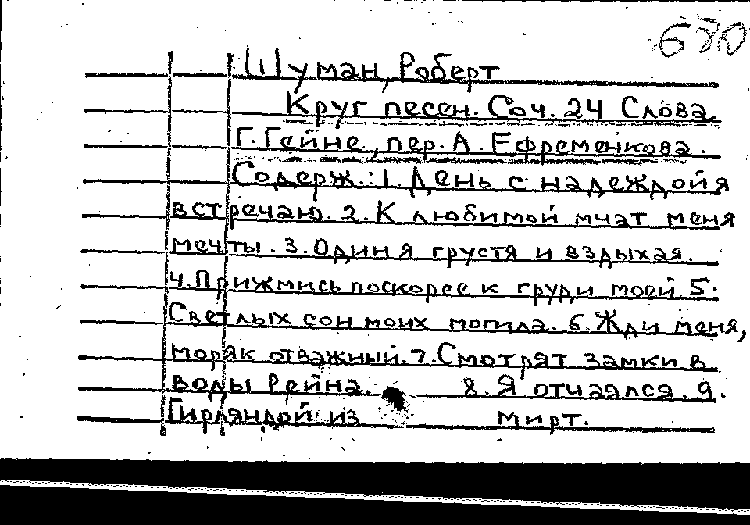 680
Шуман, Роберт
Круг песен. Соч. 24 Слова
Г. Гейне, пер. А. Ефременкова.
Содерж.: 1. День с надеждой я
встречаю. 2. К любимой мчат меня
мечты. 3. Один я грустя и вздыхая.
4. Прижмись поскорее к груди моей 5.
Светлых сон моих могила. 6. Жди меня,
моряк отважный. 7. Смотрят замки в
воды Рейна. 8. Я отчаялся. 9.
Гирляндой из мирт.